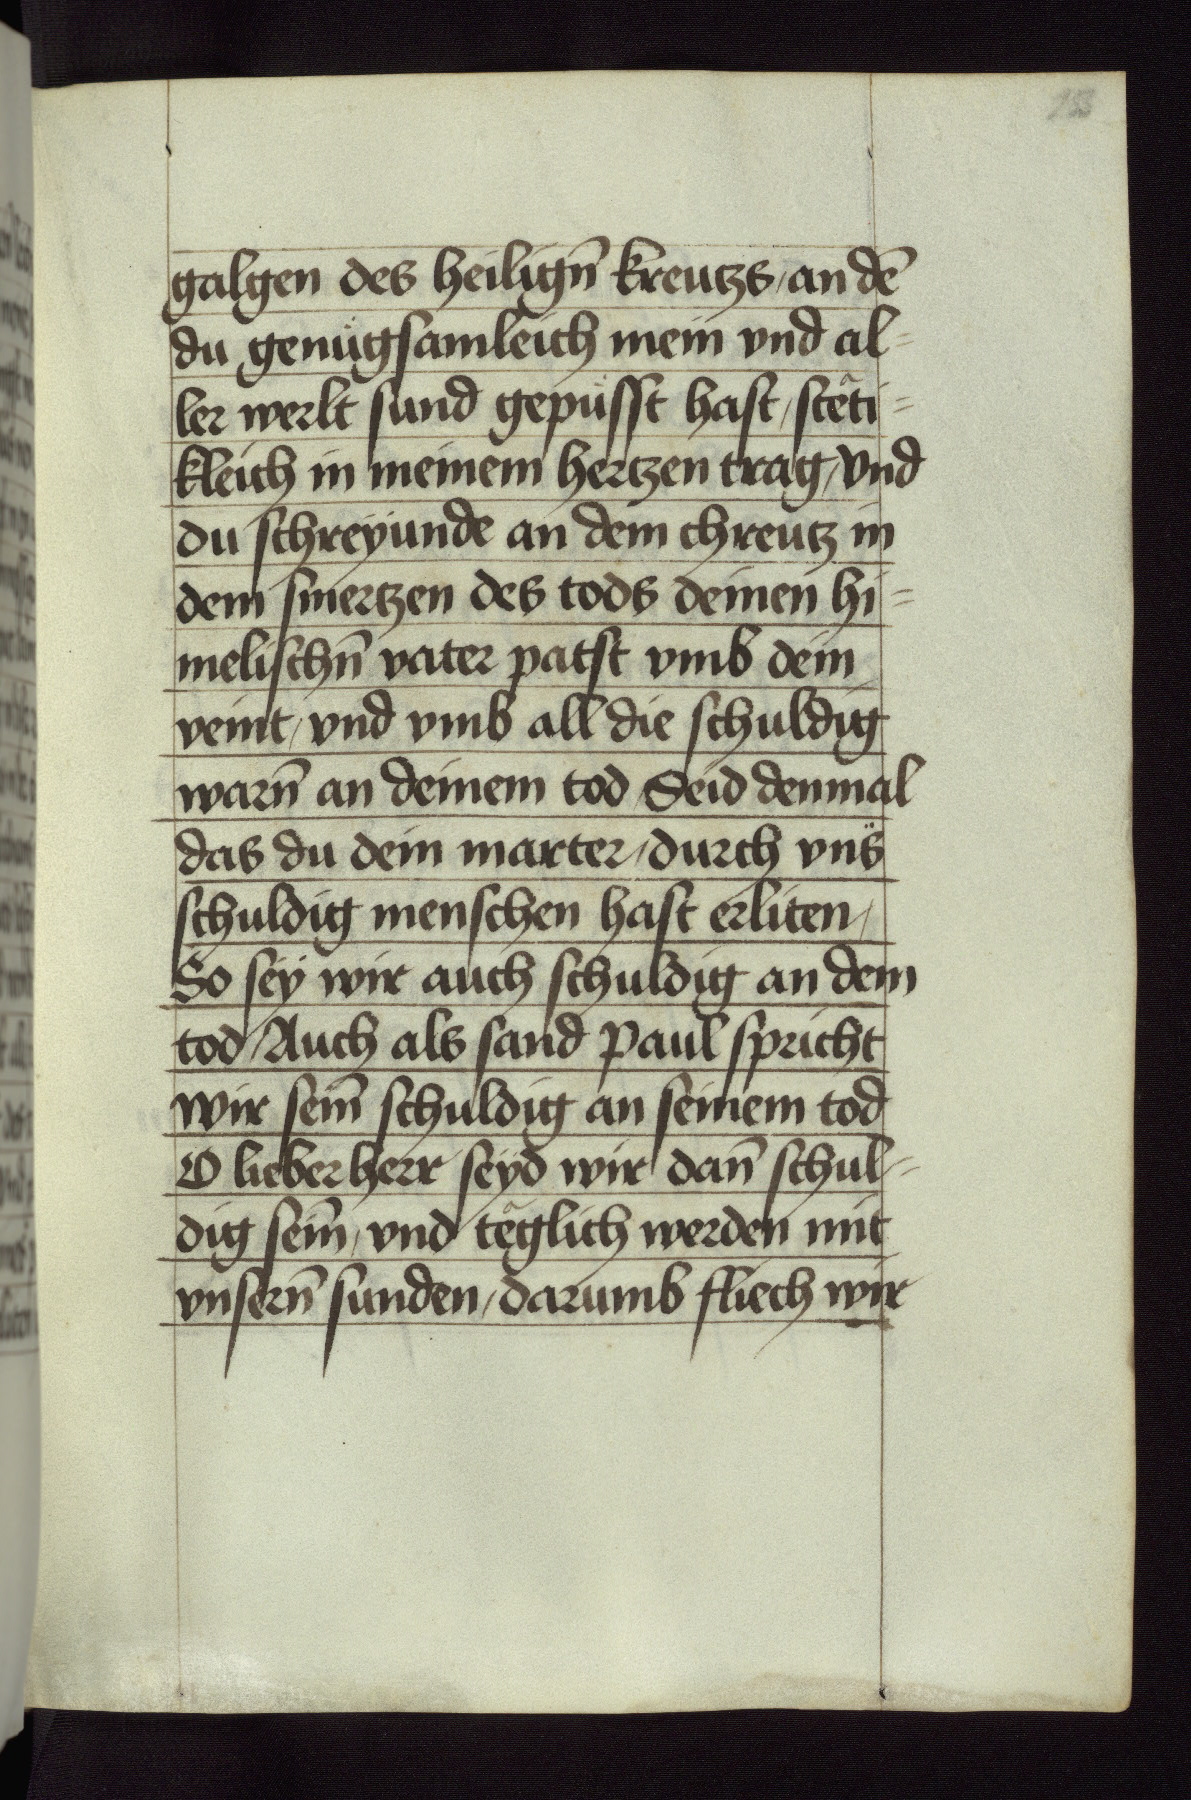 galgen des heilign̄ kreutzs / an dē
du genuͤgsamleich mein vnd al=
ler werlt sund gepuͤsst hast / stëti=
kleich in meinem hertzen trag / Vnd
du schreyunde an dem chreutz in
dem smertzen des tods deinen hi=
melischn̄ vater patst vmb dein
veint / vnd vmb all die schuldig
warn̄ an deinem tod / Seid denmal
das du dein marter / durch vnß
schuldig menschen hast erliten /
So sey wir auch schuldig an dem
tod / Auch als sand Paul spricht
wir sein̄ schuldig an seinem tod
O lieber herr seyd wir dan̄ schul=
dig sein̄ / vnd tëglich werden mit
vnsern̄ sunden / darumb fliech wir